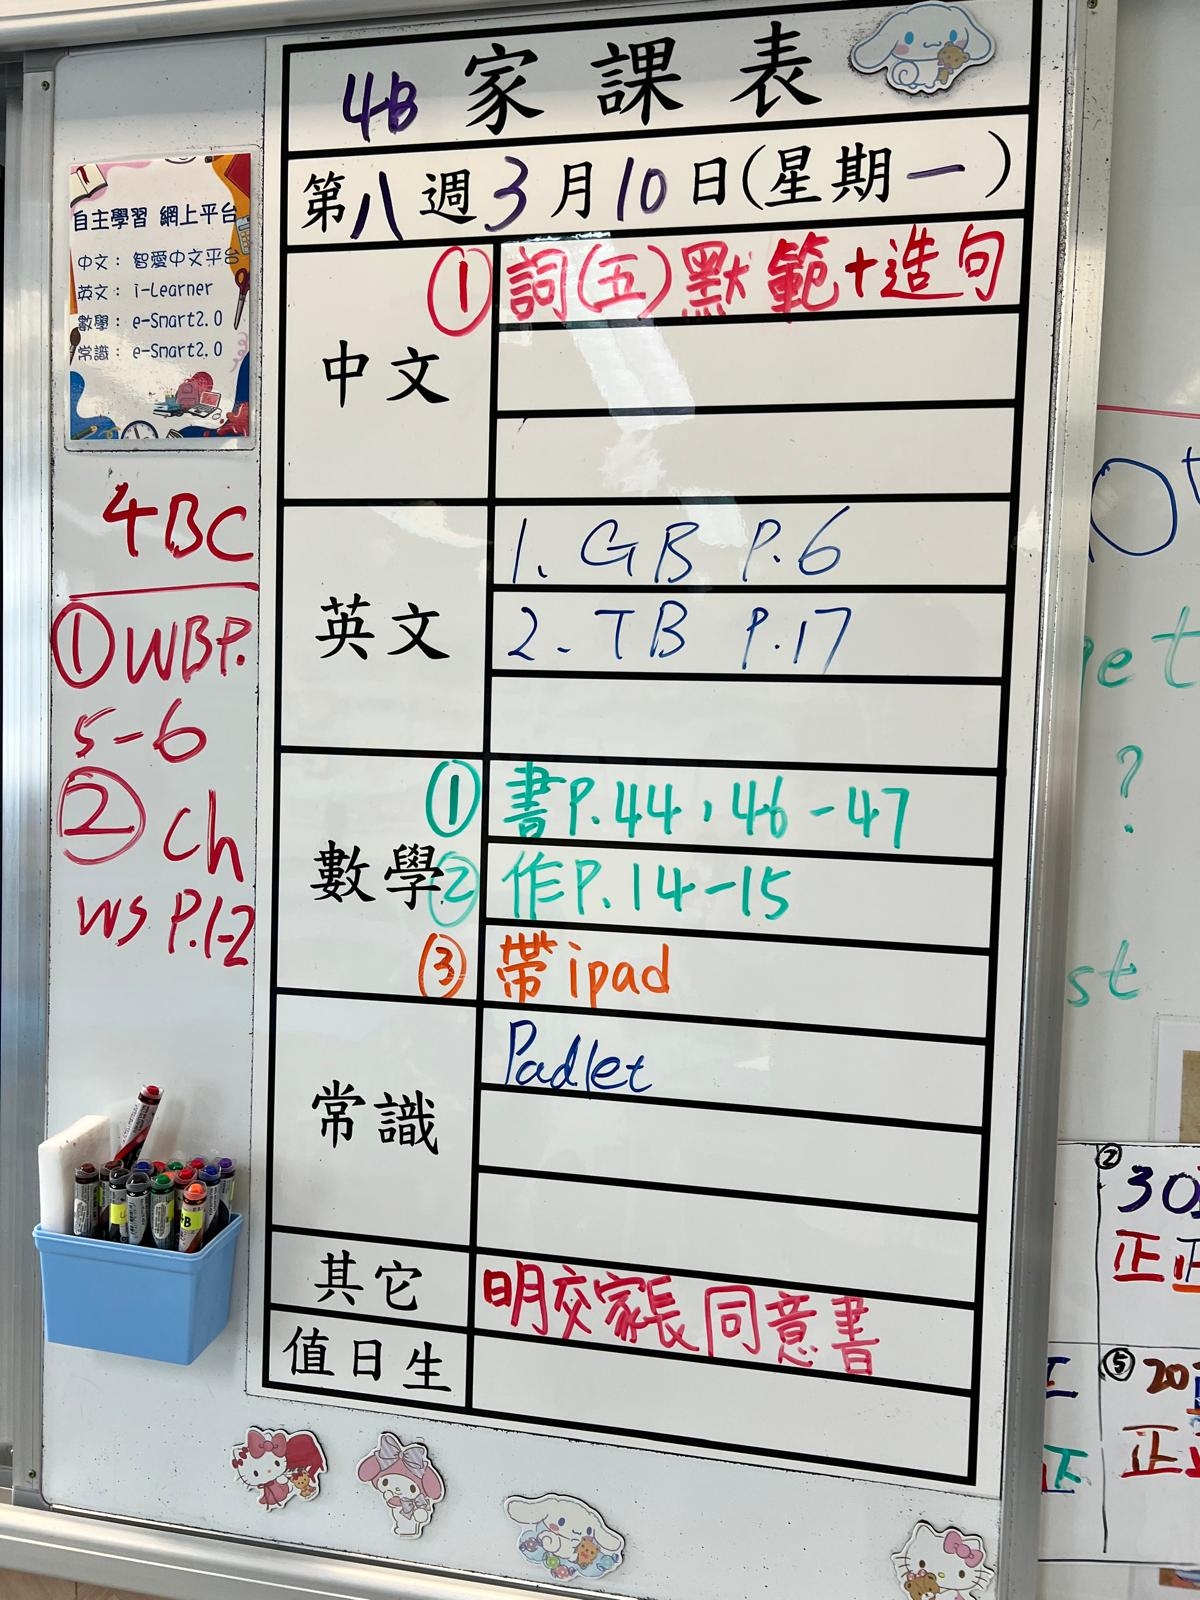 4B 家課表
第八週3月10日(星期一)
自主學習 網上平台
中文：智愛中文平台
英文：i-Learner
數學：e-Smart2.0
常識：e-Smart2.0
4BC
① WB P.
5-6
② Ch
WS P.1-2
中文
① 詞(五)默 範+造句
英文
1. GB P.6
2. TB P.17
數學
① 書P.44，46-47
② 作P.14-15
③ 帶ipad
常識
Padlet
其它
明交家長同意書
值日生
get
?
st
②
30
正正
⑤
20
正正